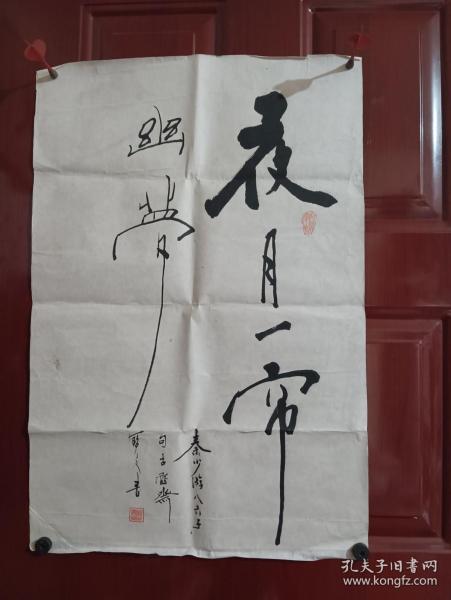 夜月一帘
幽梦
秦少游八六子
句
孔夫子旧书网
www.kongfz.com